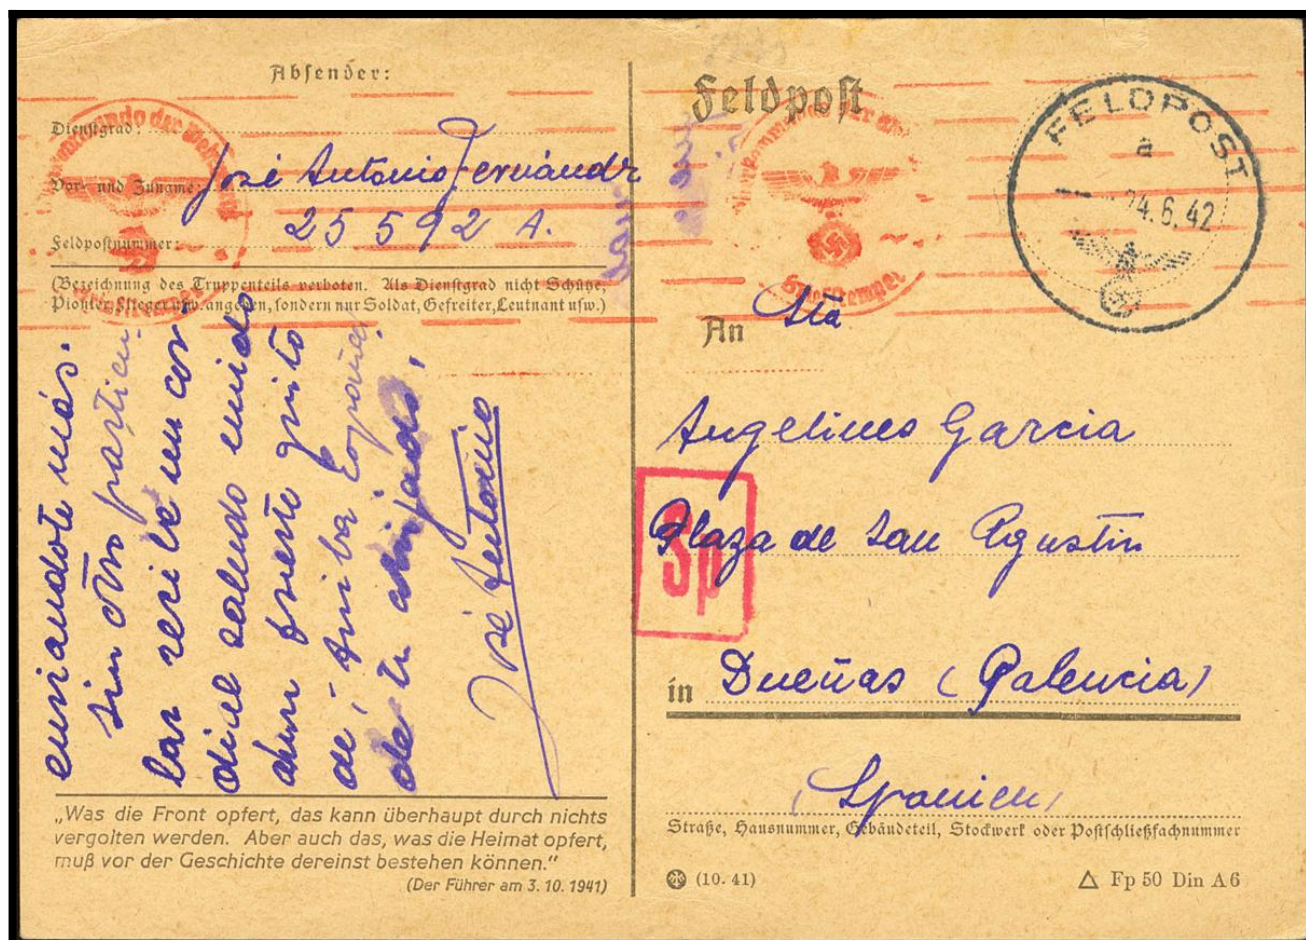 Absender:
Dienstgrad:
Vor- und Zuname: José Antonio Fernándz
25592 A.
Feldpostnummer:
(Bezeichnung des Truppenteils verboten. Als Dienstgrad nicht Schütze,
Pionier, Flieger usw. angeben, sondern nur Soldat, Gefreiter, Leutnant usw.)
enviandote más.
Sin otro particu-
lar recibe un cor-
dial saludo unido
a un fuerte grito
de ¡Arriba España!
de tu ahijado,
José Antonio
„Was die Front opfert, das kann überhaupt durch nichts
vergolten werden. Aber auch das, was die Heimat opfert,
muß vor der Geschichte dereinst bestehen können.“
(Der Führer am 3. 10. 1941)
Feldpost
FELDPOST
a
24.6.42
Oberkommando der Wehrmacht
Briefstempel
An Sta
Angelines Garcia
Plaza de San Agustin
Sp
in Dueñas (Palencia)
(Spanien)
Straße, Hausnummer, Gebäudeteil, Stockwerk oder Postschließfachnummer
(10. 41)
Fp 50 Din A6